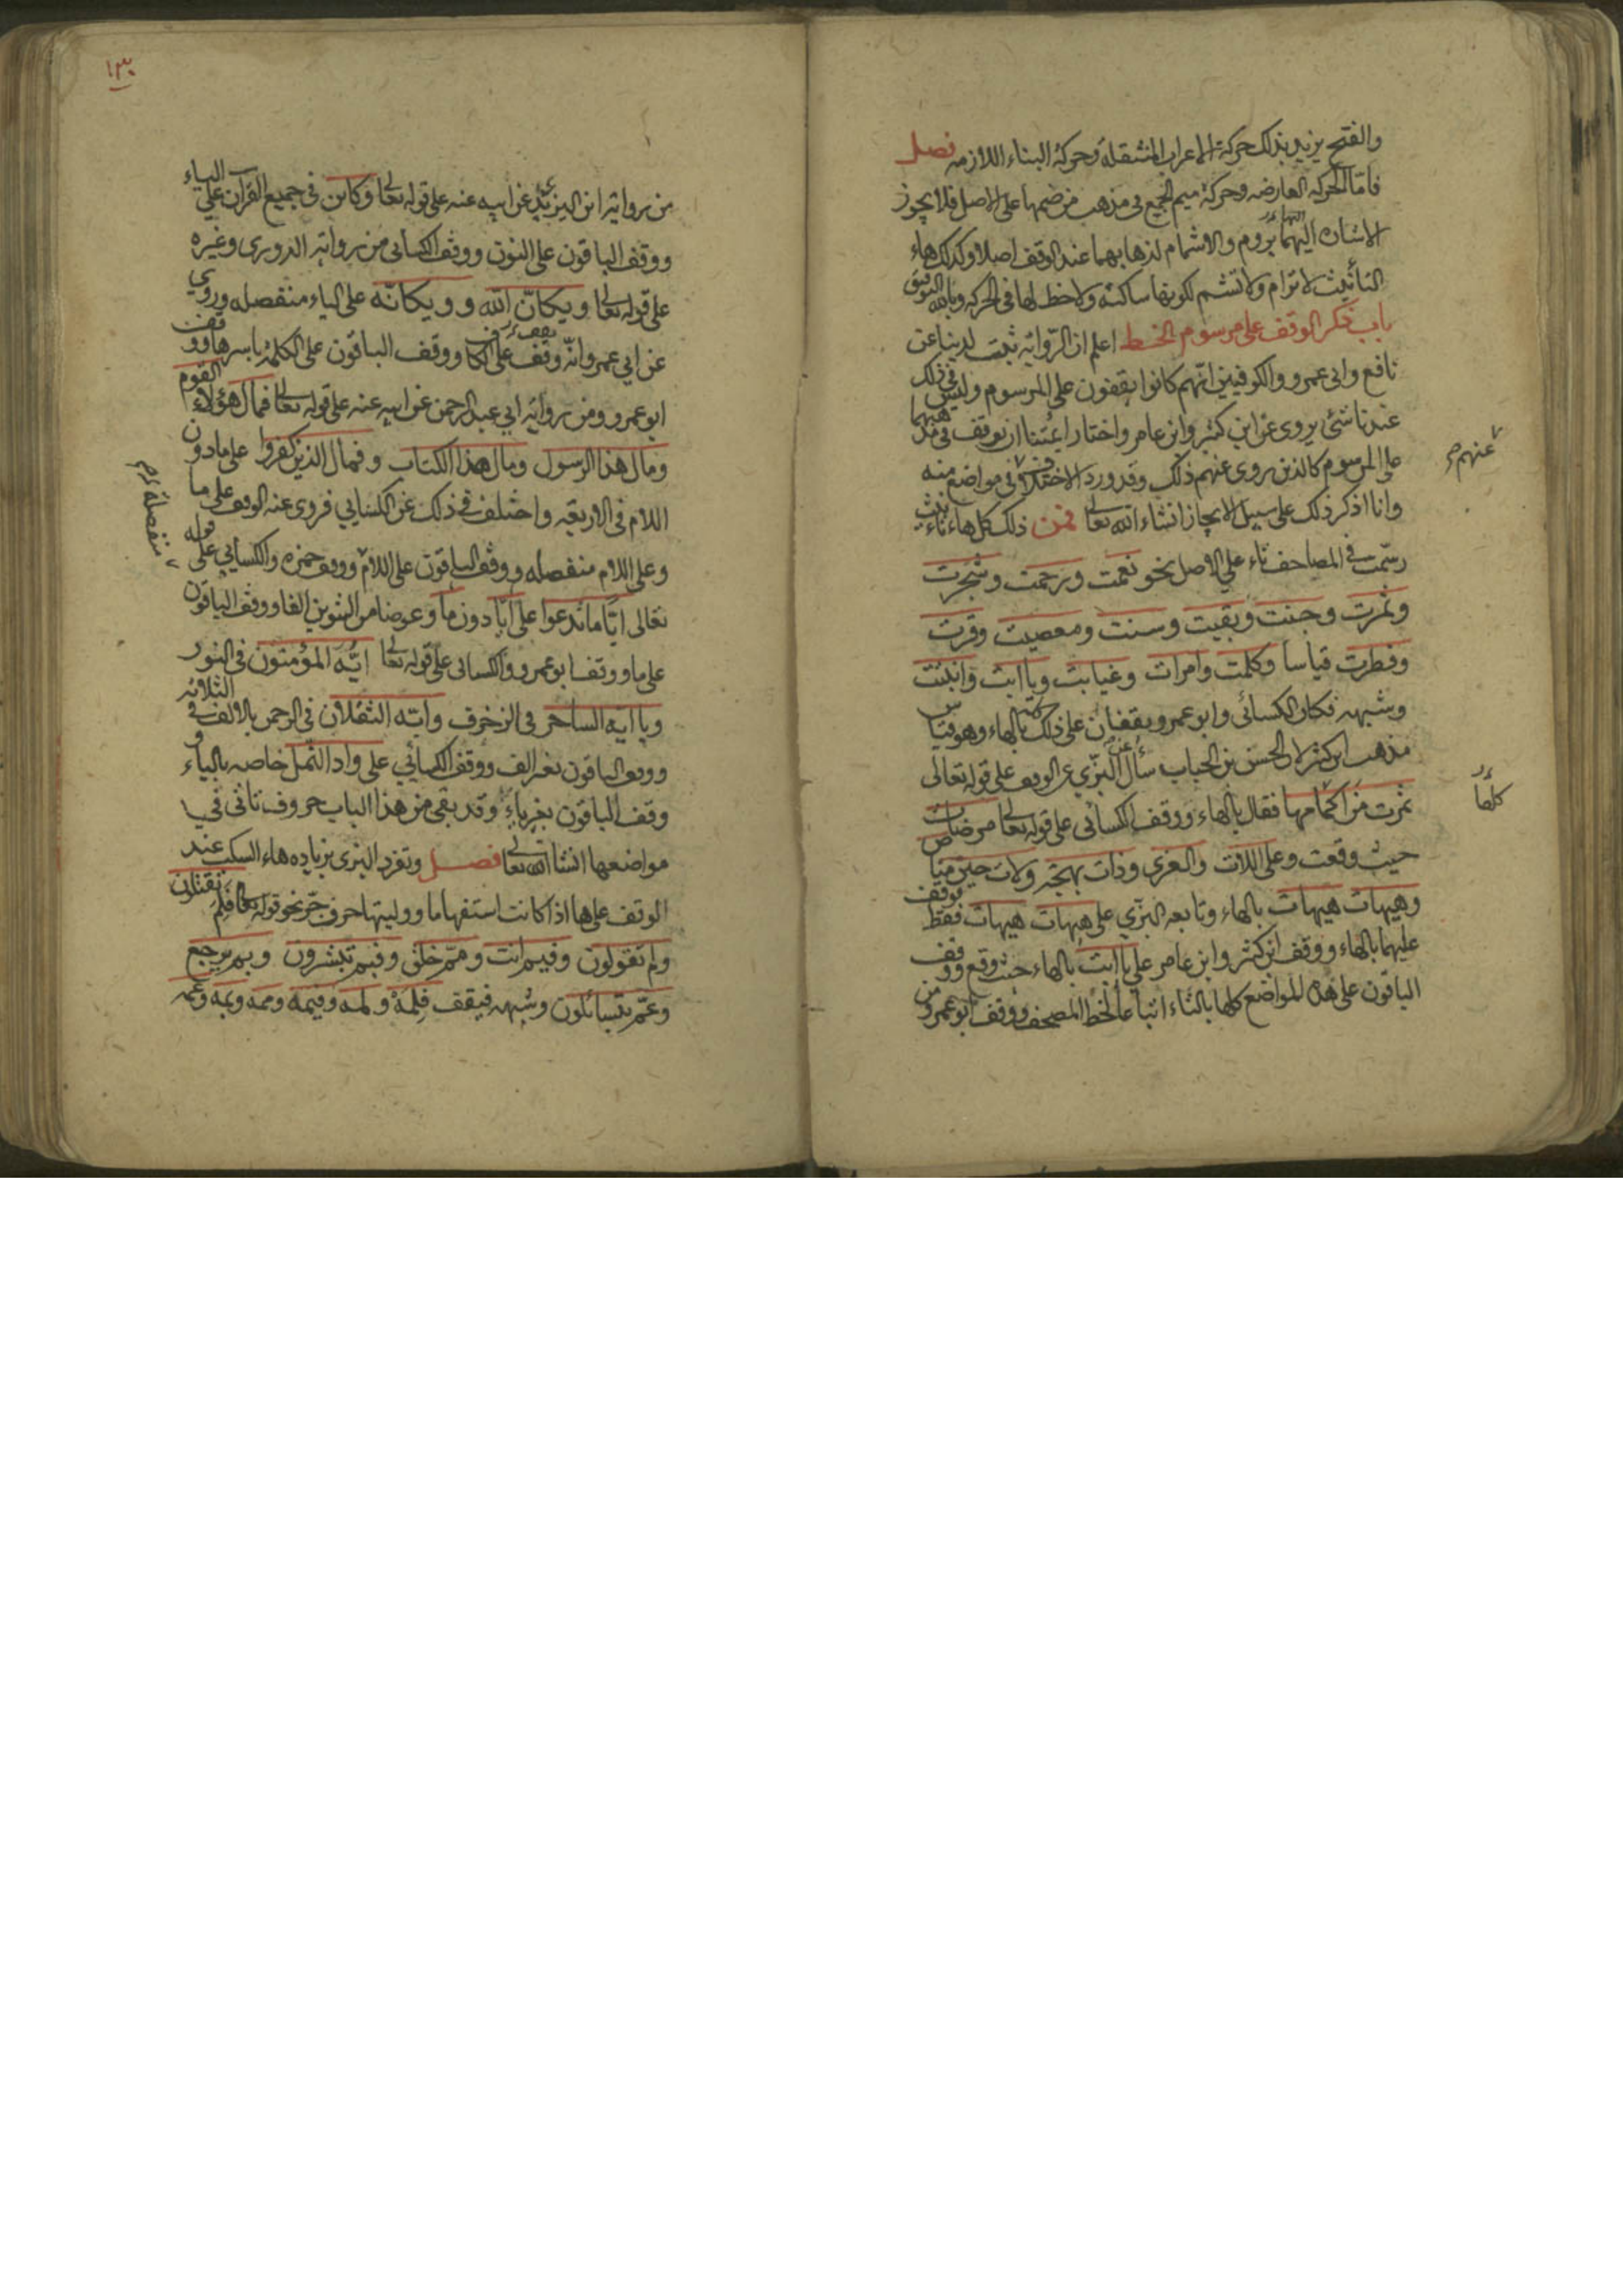 والفتح يريد بذلك حركة الاعراب المنتقلة وحركة البناء اللازمه فصل
فامّا الحركه العارضه وحركة ميم الجمع فى مذهب من ضمها على الاصل فلا يجوز
الاشاره اليهما بروم ولا اشمام لذهابهما عند الوقف اصلا وكذلك هاء
التأنيث لا ترام ولا تشم لكونها ساكنة ولا حظ لها فى الحركه وبالله التوفيق
باب ذكر الوقف على مرسوم الخط اعلم ان الرّوايه ثبتت لدينا عن
نافع وابى عمرو والكوفيين انّهم كانوا يقفون على المرسوم وليس فى ذلك
عندنا شئ يروى عن ابن كثير وابن عامر واختار ائمتنا ان يوقف فى مذهبهما
على المرسوم كالذين يروى عنهم ذلك وقد ورد الاختلاف فى مواضع منه
عنهم
وانا اذكر ذلك على سبيل الايجاز انشاء الله تعالى فمن ذلك كل هاء تانيث
رسمت فى المصاحف تاء على الاصل نحو نعمت ورحمت وشجرت
وثمرت وجنت وبقيت وسنت ومعصيت وقرت
وفطرت قياسا وكلمت وامرات وغيابت ويا ابت وابنت
وشبهه فكان الكسائى وابو عمرو يقفان على ذلك كله بالهاء وهو قياس
مذهب ابن كثير لان الحسن بن الحباب سأل البزّي عن الوقف على قوله تعالى
ثمرت من اكمامها فقال بالهاء ووقف الكسائى على قوله تعالى مرضات
كلها
حيث وقعت وعلى اللات والعزى وذات بهجة ولات حين مناص
وهيهات هيهات بالهاء وتابعه البزّي على هيهات هيهات فقط فوقف
عليهما بالهاء ووقف ابن كثير وابن عامر على يا ابت بالهاء حيث وقع ووقف
الباقون على هذه المواضع كلها بالتاء اتباعا لخط المصحف ووقف ابو عمرو من
١٣٠
من روايه ابن اليزيدي عن ابيه عنه على قوله تعالى وكاين فى جميع القرآن على الياء
ووقف الباقون على النون ووقف الكسائى من روايه الدورى وغيره
على قوله تعالى ويكانّ الله وويكانّه على الياء منفصله وروي
عن ابي عمرو انّه وقف على الكاف ووقف الباقون على الكلمة باسرها ووقف
ابو عمرو من روايه ابي عبد الرحمن عن ابيه عنه على قوله تعالى فمال هؤلاء القوم
ومال هذا الرسول ومال هذا الكتاب وفمال الذين كفروا على ما دون
اللام فى الاربعه واختلف فى ذلك عن الكسايي فروى عنه الوقف على ما
منفصلة
وعلى اللام منفصله ووقف الباقون على اللام ووقف حمزه والكسايي على قوله
تعالى ايّا ما تدعوا على ايّا دون ما وعوضا من التنوين الفا ووقف الباقون
على ما ووقف ابو عمرو والكسائى على قوله تعالى ايّه المؤمنون فى النور
ويا ايّه الساحر فى الزخرف وايّه الثقلان فى الرحمن بالالف فى الثلاثه
ووقف الباقون بغير الف ووقف الكسائي على واد النّمل خاصه بالياء و
وقف الباقون بغير ياء وقد بقى من هذا الباب حروف تاتى فى
مواضعها انشا الله تعالى فصل وتفرد البزى بزياده هاء السكت عند
الوقف على ما اذا كانت استفهاما ووليتها حرف جرّ نحو قوله تعالى فلم تقتلون
ولم تقولون وفيم انت وممّ خلق وفبم تبشرون وبم يرجع
وعمّ يتسائلون وشبهه فيقف فلمه ولمه وفيمه وممه وبمه وعمه